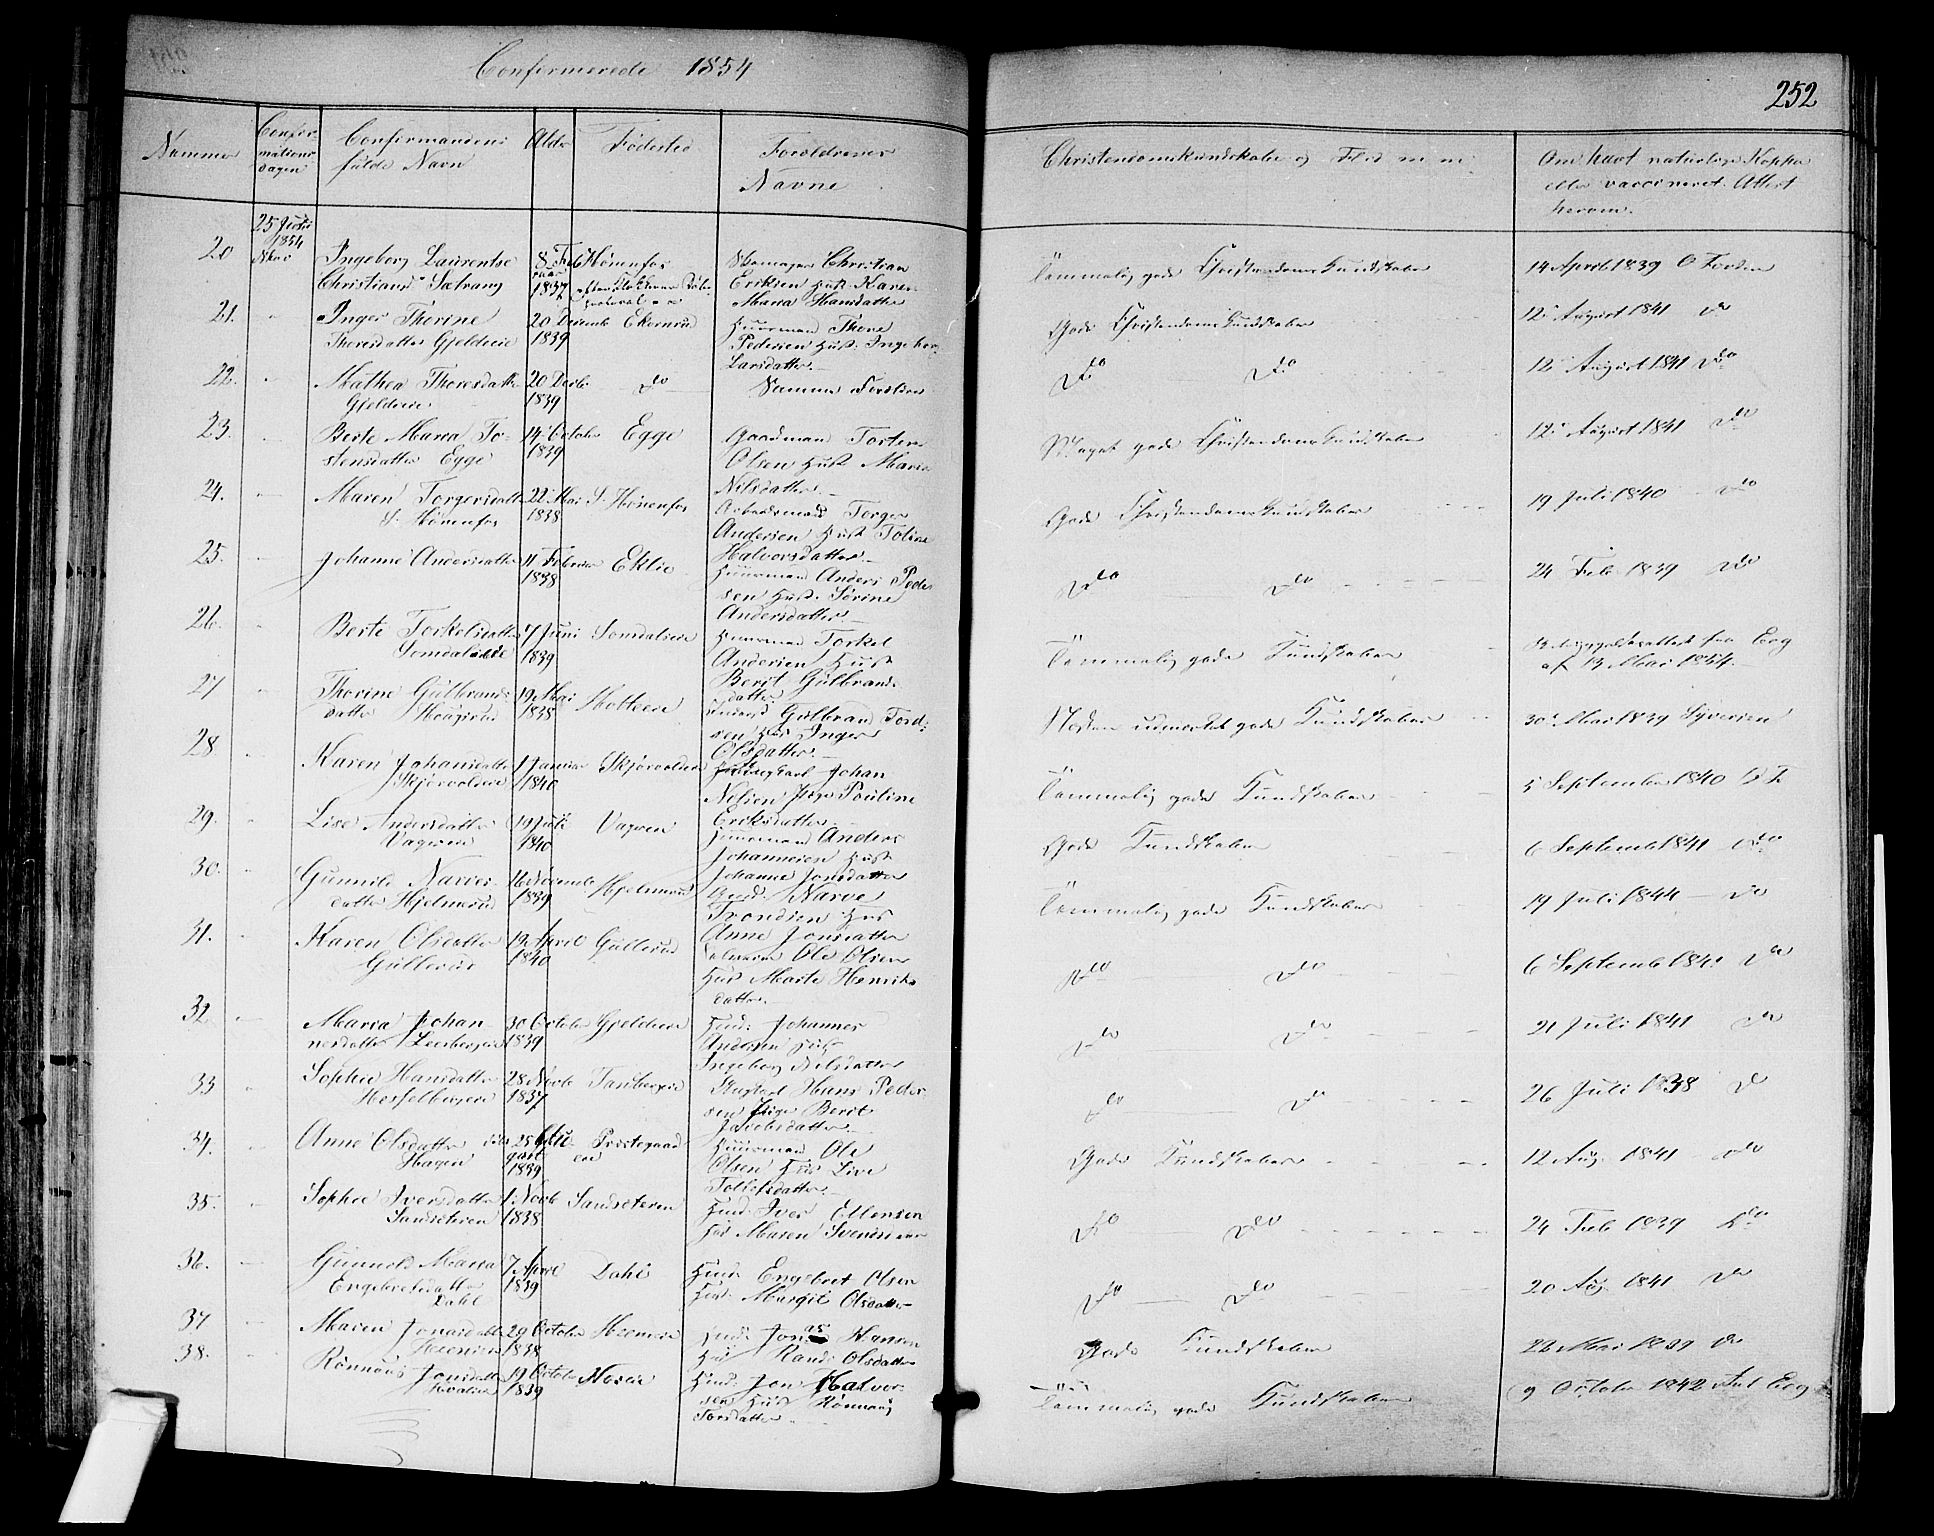 Confirmerede 1854
252
Nummer
Confir-
mations
dagen
Confirmandens
fulde Navn
Alder
Fødested
Forældrenes
Navne
Christendomskundskabe og Flid m. m.
Om havt naturlige Kopper
eller vaccineret. Attest
herom.
20
25 Juni
1854
Ingeborg Laurentse
Christians Sætrang
8 Feb
ruar
1837
Hønenfos
Christian
Eriksen Hust. Karen
Maria Hansdatter
Temmelig gode Christendoms Kundskaber
14 April 1839
21.
Inger Thorine
Thoresdatter Gjelderie
20 Decemb
1839
Ekornrud
Huusmand Thore
Pedersen Hust. Ingebor
Larsdatter
Gode Christendoms Kundskaber
12 August 1841 do
22.
Mathea Thoresdatt
Gjelderie
20 Decb.
1839
do
Samme Forældre
Do Do
12 August 1841 Do
23.
Berte Maria To-
stensdatter Egge
14 Octobr
1839
Egge
Gaardmand Torsten
Olsen Hust Maren
Nilsdatter
Meget gode Christendoms Kundskaber
12 August 1841 do
24.
Maren Torgersdatt
S. Hønenfos
22 Mai
1838
S. Hønenfos
Arbeidsmand Torger
Andersen Hust Toline
Halvorsdatter
Gode Christendoms Kundskaber
19 Juli 1840 do
25.
Johanne Andersdatter
11 Februar
1838
Eklie
Huusmand Anders Peder
sen Hust. Sørine
Andersdatter
Do Do
24 Feb. 1839 do
26.
Berte Torkelsdatter
Somdalseie
7 Juni
1839
Somdalseie
Huusmand Torkel
Andersen Hust
Berit Gulbrands
datter
Temmelig gode Kundskaber
af 13 Mai 1854
27
Thorine Gulbrands
datter
19 Mai
1838
Gulbrand Tord-
sen Hust Inger
Olsdatter
Næsten udmerket gode Kundskaber
30 Mai 1839 Syversen
28
Karen Johansdatte
Skjørvoldeie
1 Januar
1840
Skjørvoldeie
Johan
Nilsen Pige Pauline
Eriksdatter
Temmelig gode Kundskaber
5 September 1840
29.
Lise Andersdatter
Vageneie
19 Juli
1840
Huusmand Anders
Johannesen Hust
Johanne Jonsdatter
Gode Kundskaber
6 Septemb 1841 do
30.
Gunnild Narves-
datter Hjelmerud
16 Novemb
1839
Hjelmerud
Narve
Trondsen Hus
Anne Jonsdatter
Temmelig gode Kundskaber
19 Juli 1844 do
31.
Karen Olsdatter
Gullerud
19 April
1840
Gullerud
Ole Olsen
Hust Marte Henriks
datter
Do Do
6 Septemb 1841 do
32.
Maria Johan-
nesdatter
30 Octobr
1839
Gjelderie
Huus. Johannes
Andersen Hust
Ingeborg Nilsdatter
Do Do
21 Juli 1841 do
33
Sophie Hansdatter
Hesselbergeie
28 Novb
1837
Hans Peder-
sen Pige Berit
Jacobsdatter
Do Do
26 Juli 1838 do
34.
Anne Olsdatter
Hagen
25 Au
gust
1839
Præstegaard
en
Huusmand Ole
Olsen Hus Live
Tollefsdatter
Gode Kundskaber
12 Aug. 1841 do
35.
Sophie Iversdatter
Sandseteren
1 Novb
1838
Sandseteren
Huus. Iver Ellensen
Hus Maren Svendsdatter
Do Do
24 Feb 1839 do
36.
Gunnild Maria
Engebretsdatter
Dahl
7 April
1839
Dahl
Huus. Engebret Olsen
Hus. Margit Olsdatter
Do Do
20 Aug. 1841 do
37
Maren Jonasdatter
29 October
1838
Huus. Jonas Hansen
Hus Randi Olsdatter
Gode Kundskaber
22 Mai 1839 do
38.
Rønnaug Jonsdatter
19 October
1839
Huus. Jon Halvor-
sen Hust Rønnaug
Torsdatter
Temmelig gode Kundskaber
9 October 1842